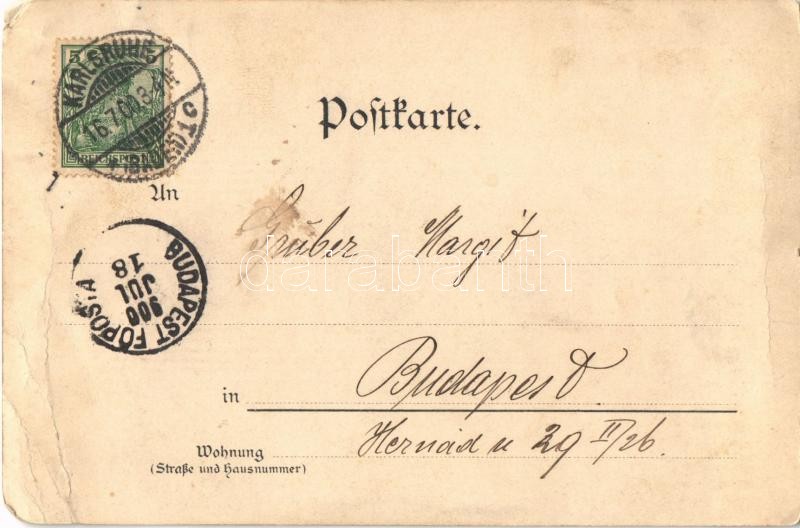 5 5
REICHSPOST
KARLSRUHE
16.7.00.3
1c
Postkarte.
An
Gruber Margit
darabanth
BUDAPEST FŐPOSTA
900
JUL
18
in
Budapest
Hernád u 29 II/26.
Wohnung
(Straße und Hausnummer)